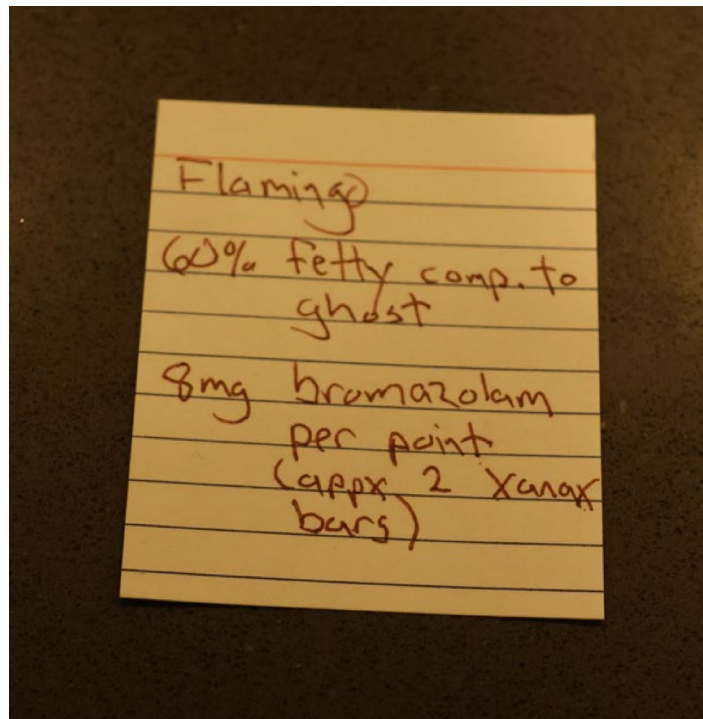 Flamingo
60% fetty comp. to
ghost
8mg bromazolam
per point
(appx 2 Xanax
bars)